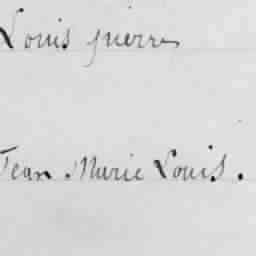 Louis pierre
Jean Marie Louis.